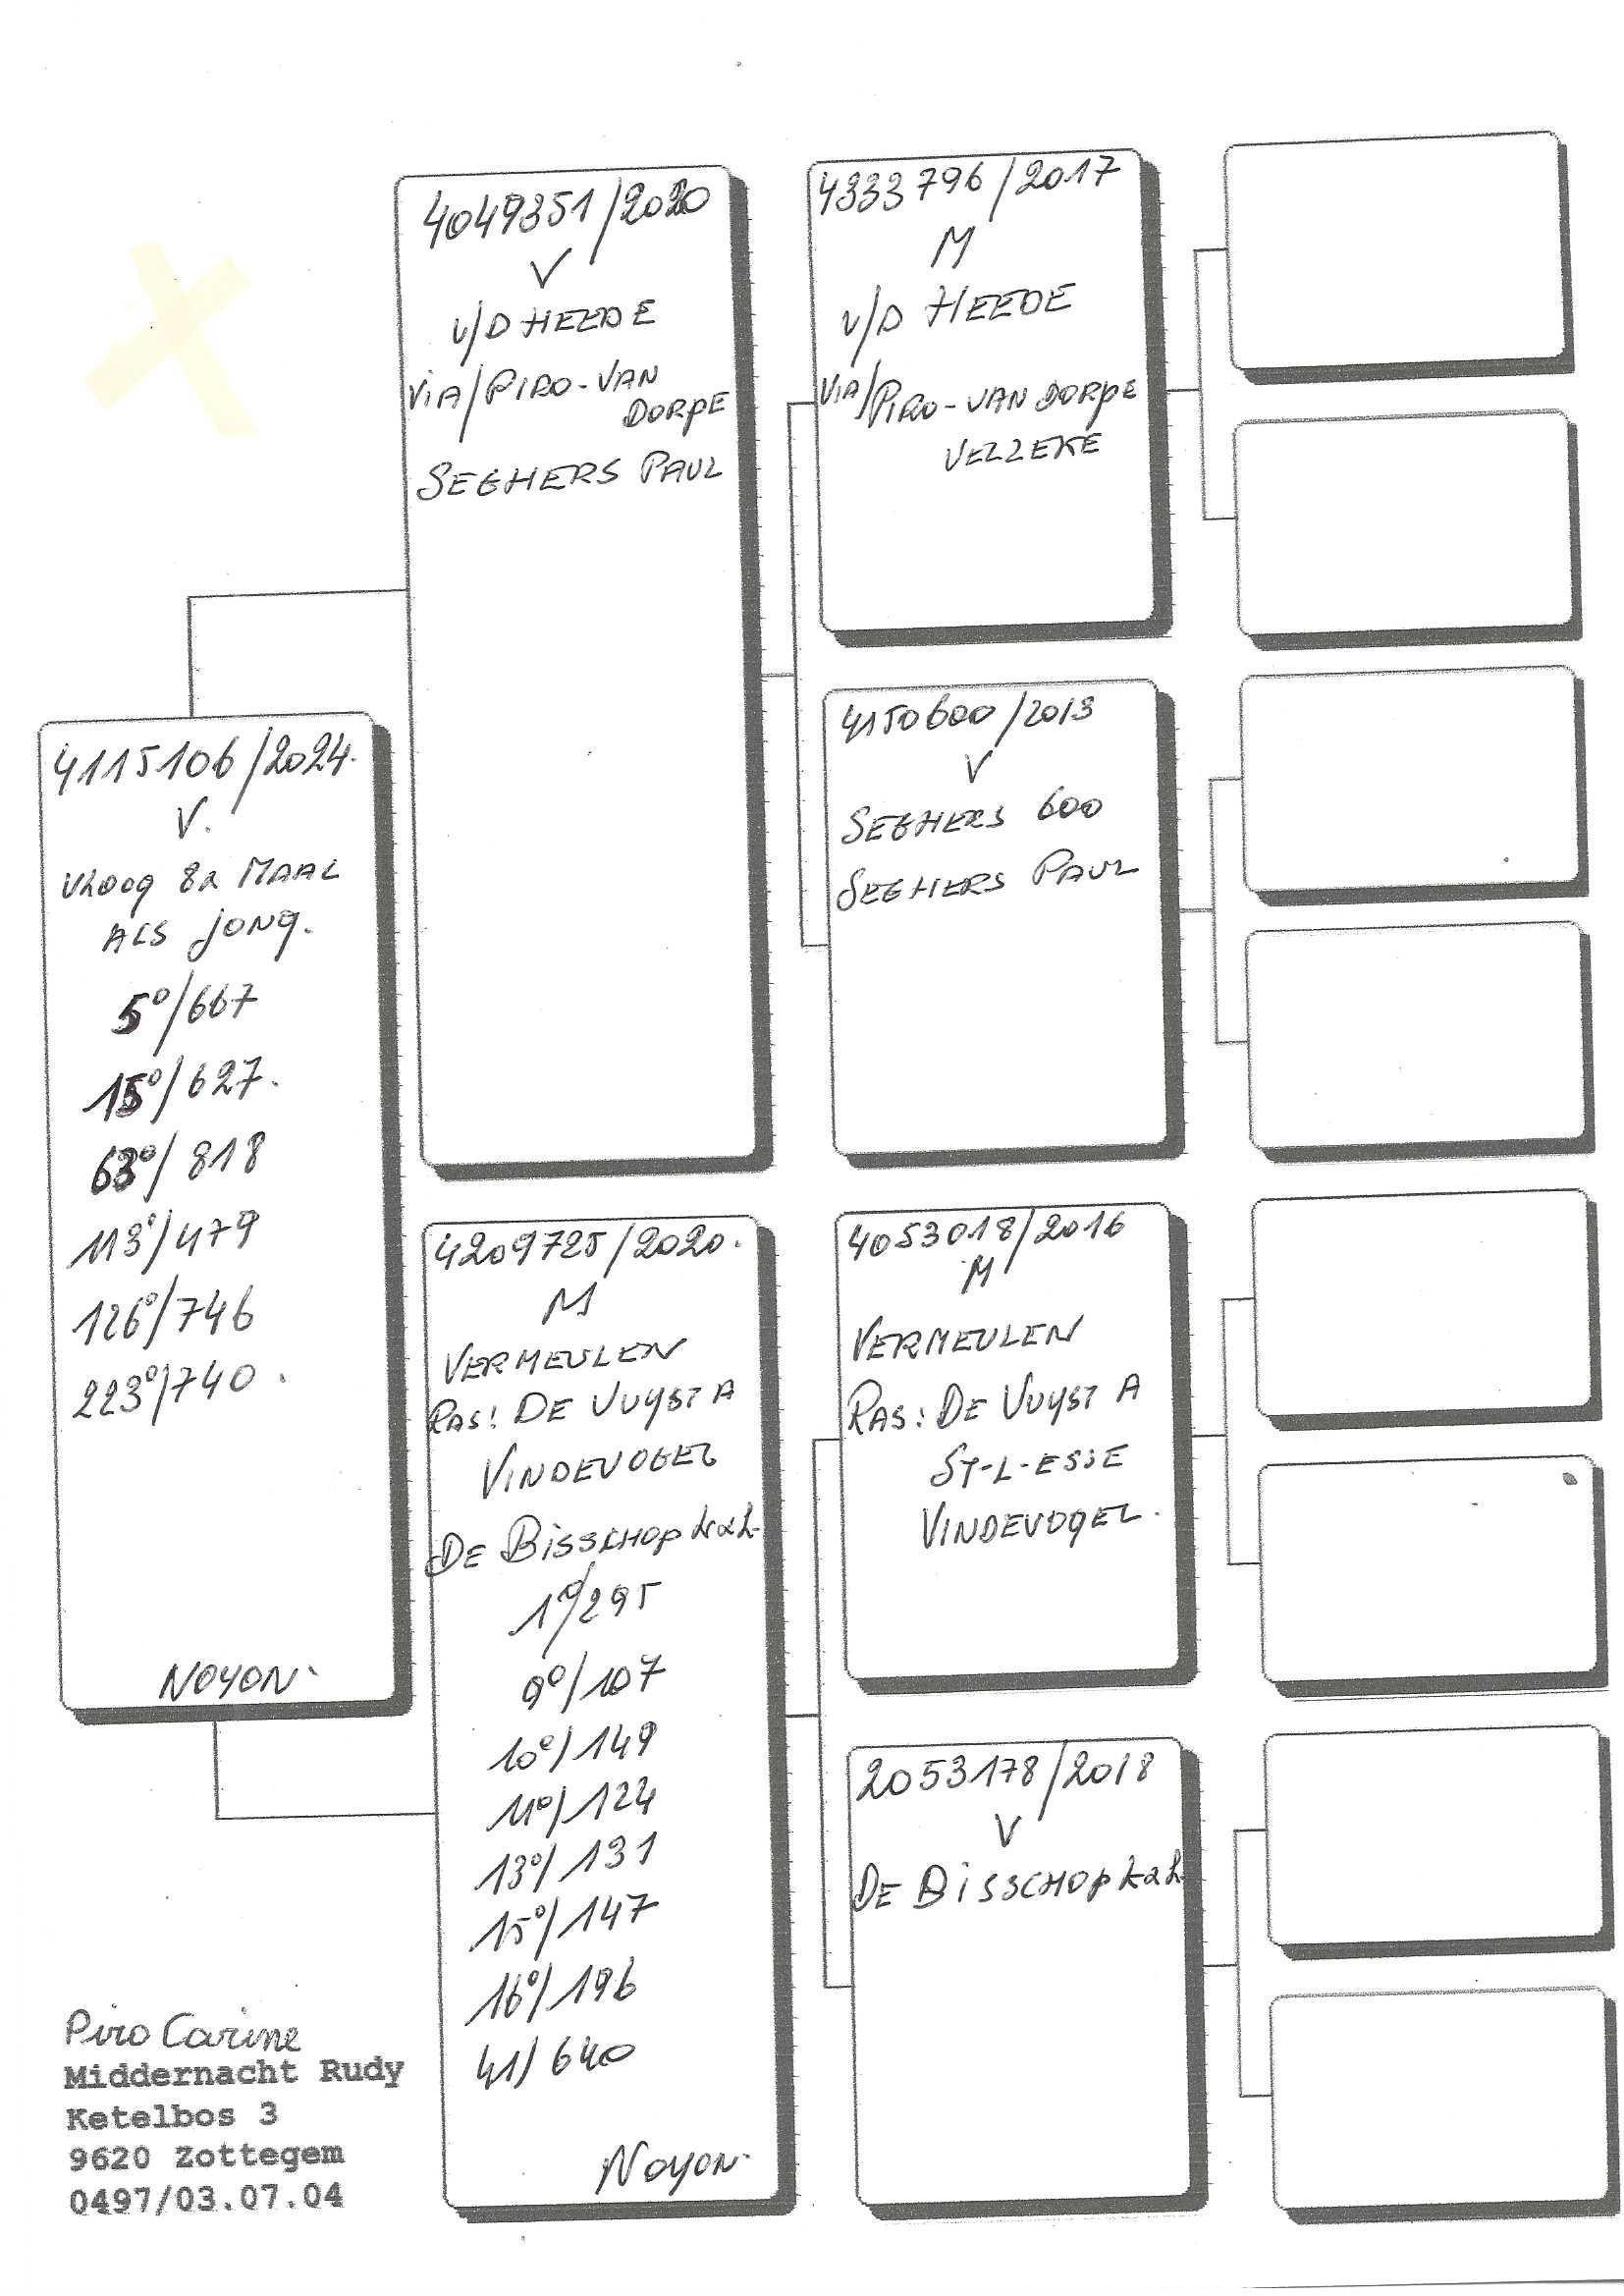 4115106/2024.
V.
VLOOG 8x MAAL
ALS JONG.
5°/667
15°/627.
63°/818
113°/479
126°/746
223°/740.
NOYON.
4049351/2020
V
V/D HEEDE
VIA/PIRO-VAN
DORPE
SEGHERS PAUL
4209725/2020.
M
VERMEULEN
RAS: DE VUYST A
VINDEVOGEL
DE BISSCHOP
1°/295
9°/107
10°/149
11°/124
13°/131
15°/147
16°/196
41/640
NOYON.
4333796/2017
M
V/D HEEDE
VIA/PIRO-VAN DORPE
VELZEKE
4150600/2013
V
SEGHERS 600
SEGHERS PAUL
4053018/2016
M
VERMEULEN
RAS: DE VUYST A
ST-L-ESSE
VINDEVOGEL.
2053178/2018
V
DE BISSCHOP
Piro Carine
Middernacht Rudy
Ketelbos 3
9620 Zottegem
0497/03.07.04